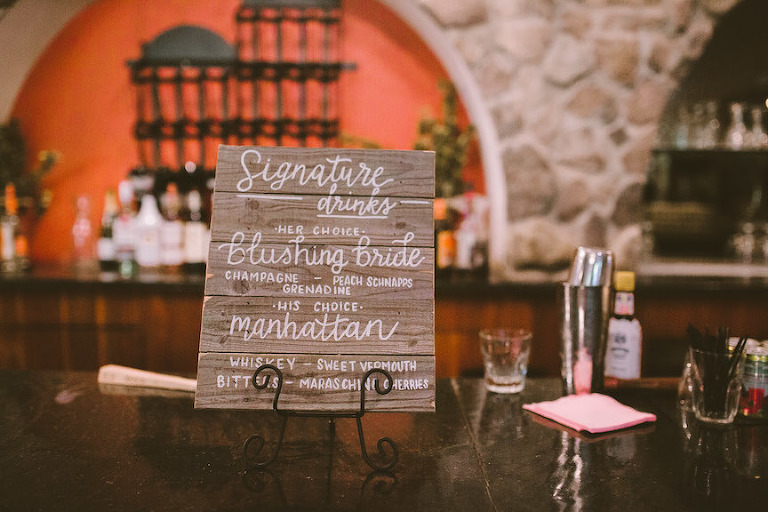 Signature
drinks
·HER CHOICE·
blushing bride
CHAMPAGNE – PEACH SCHNAPPS
GRENADINE
·HIS CHOICE·
manhattan
WHISKEY – SWEET VERMOUTH
BITTERS – MARASCHINO CHERRIES